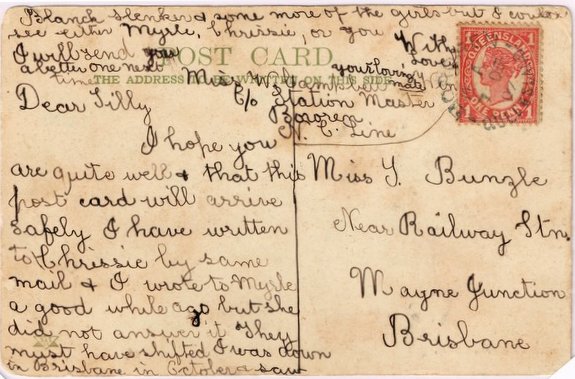 Blanck Slenker & some more of the girls but I couldn't
see either Myrle, Chrissie, or you
I will send you
a better one next
time
With
Love
your loving
mate
POST CARD
THE ADDRESS TO BE WRITTEN ON THIS SIDE
QUEENSLAND
ONE PENNY
1
1
Miss W. Campbell
C/o Station Master
Bororen
N. C. Line
Dear Tilly
I hope you
are quite well & that this
post card will arrive
safely I have written
to Chrissie by same
mail & I wrote to Myrle
a good while ago but she
did not answer it They
must have shifted I was down
in Brisbane in October & saw
Miss T. Bunzle
Near Railway Stn.
Mayne Junction
Brisbane